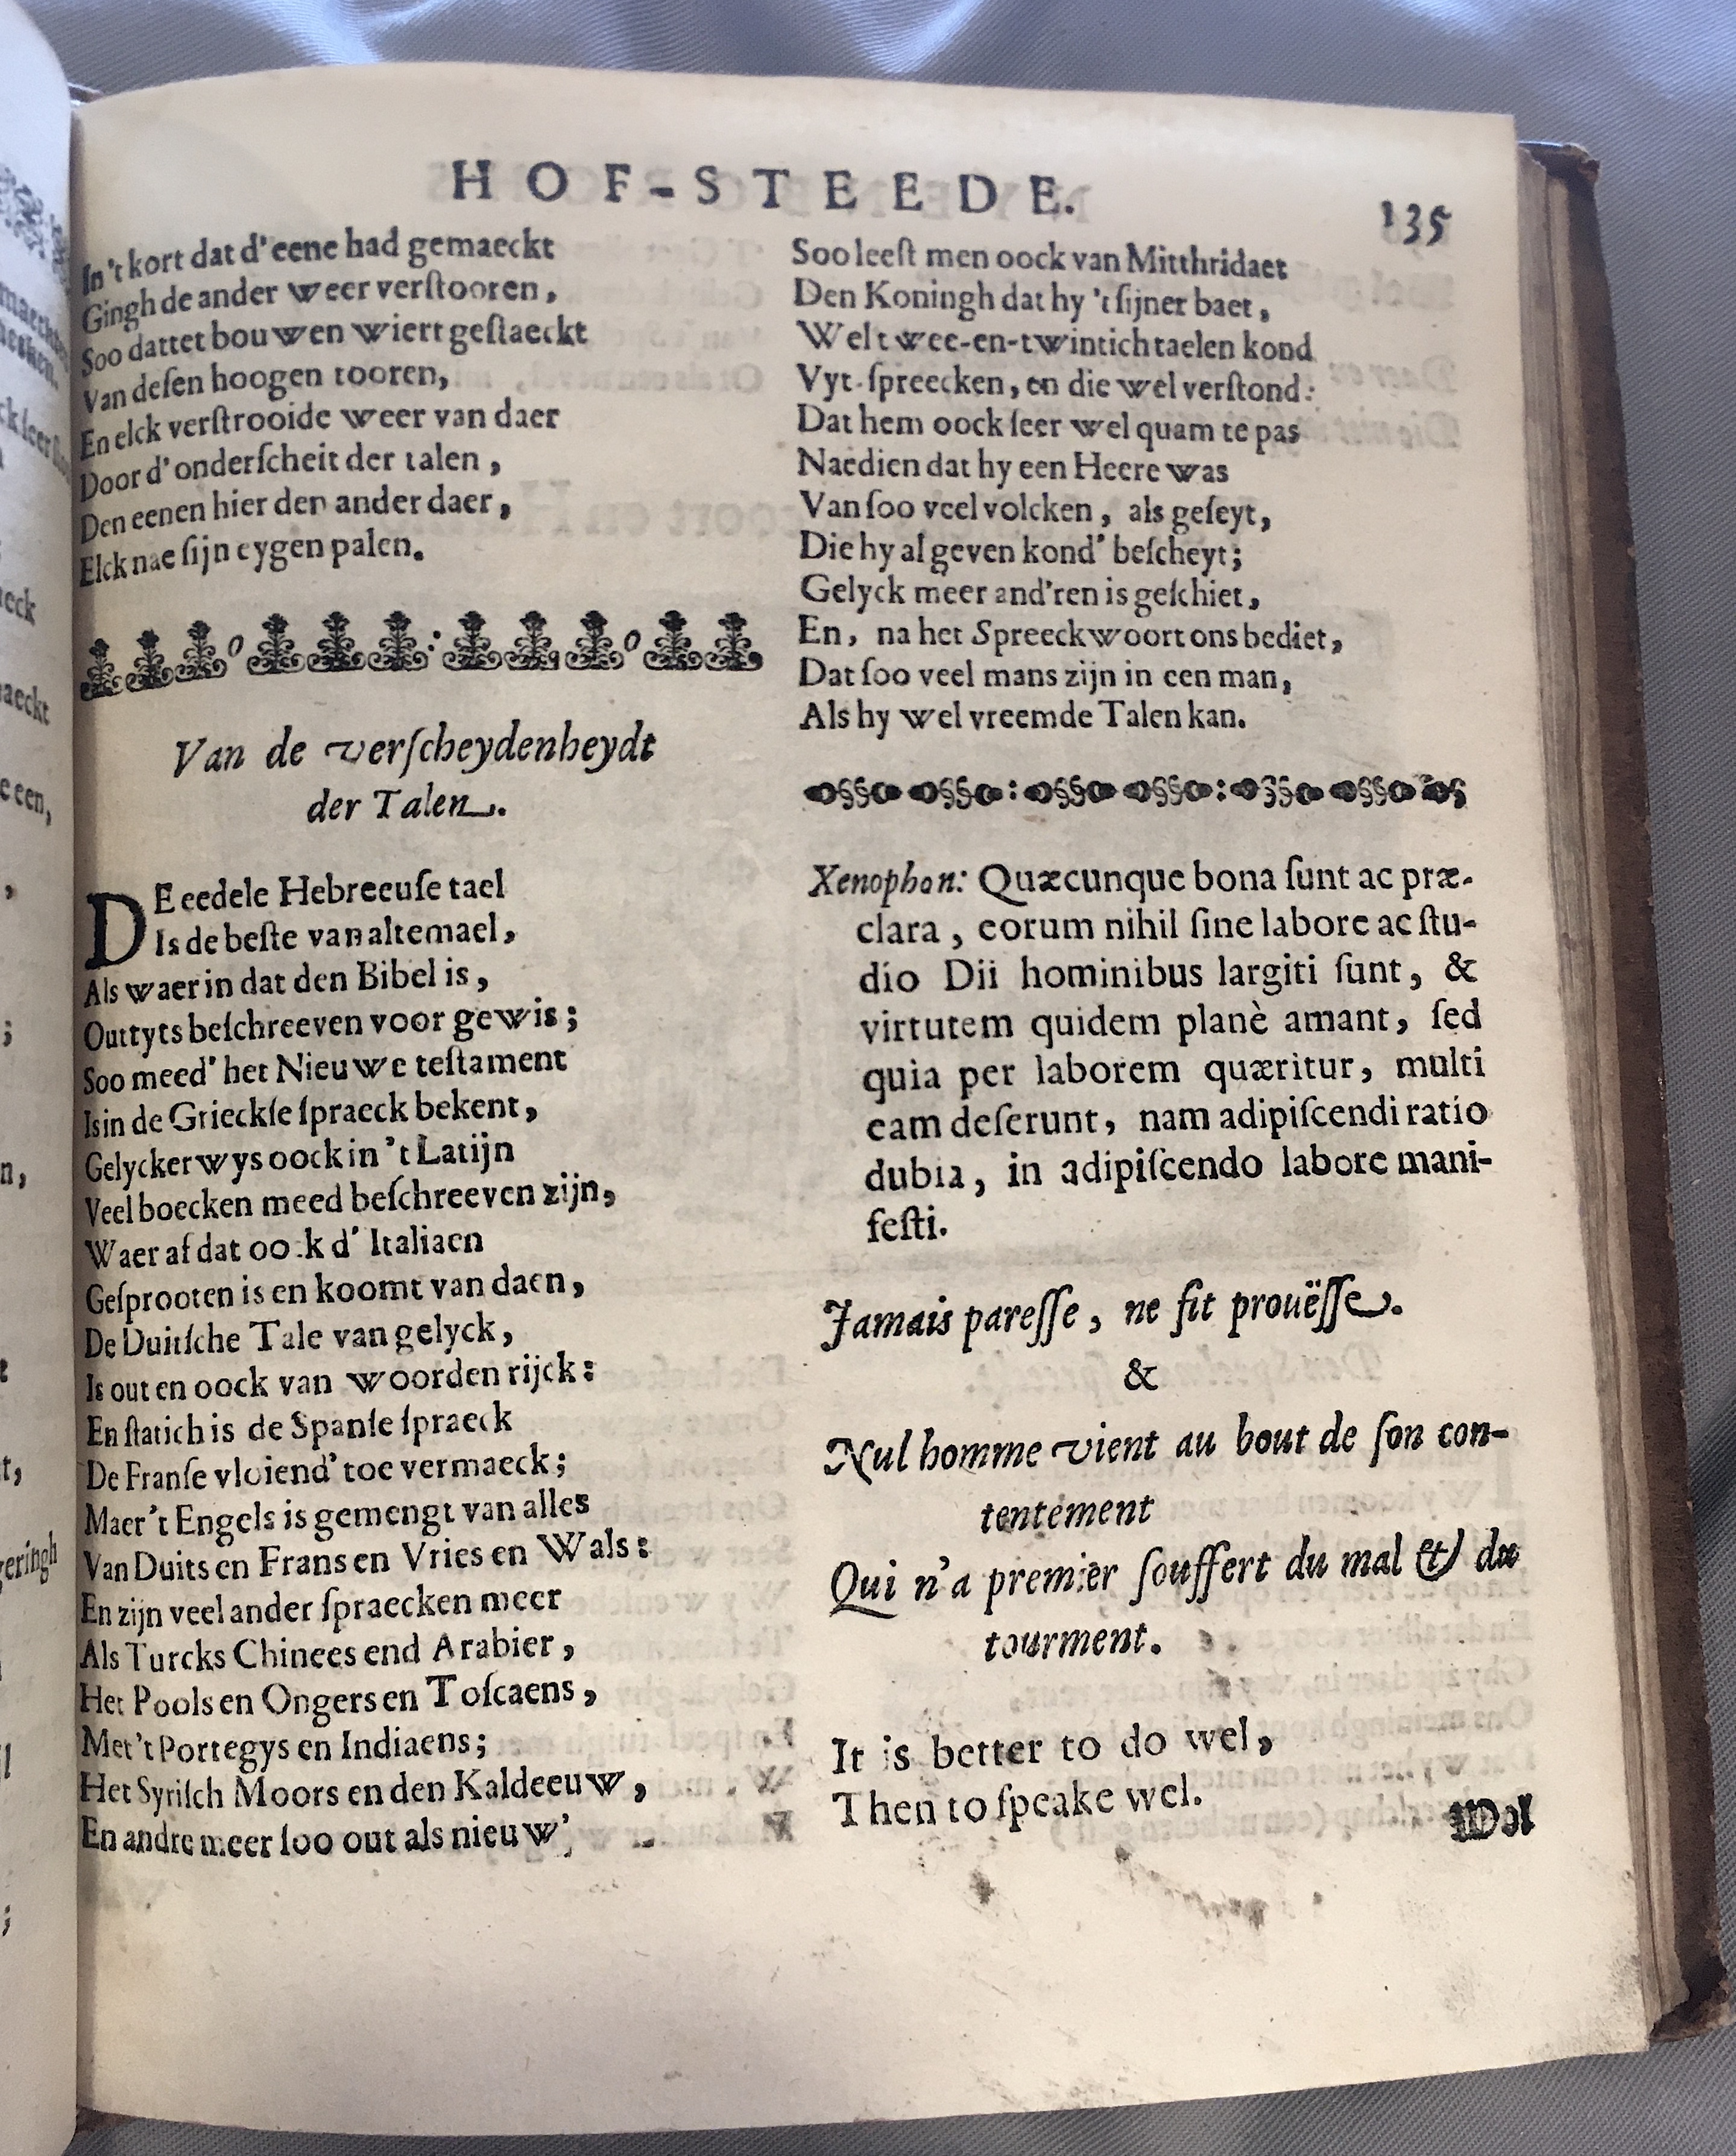 HOF-STEEDE.
135
In 't kort dat d' eene had gemaeckt
Gingh de ander weer verſtooren,
Soo dattet bouwen wiert geſlaeckt
Van deſen hoogen tooren,
En elck verſtrooide weer van daer
Door d' onderſcheit der talen,
Den eenen hier den ander daer,
Elck nae ſijn eygen palen.
Van de verſcheydenheydt
der Talen.
DE eedele Hebreeuſe tael
Is de beſte van altemael,
Als waer in dat den Bibel is,
Outtyts beſchreeven voor gewis;
Soo meed' het Nieuwe teſtament
Is in de Grieckſe ſpraeck bekent,
Gelyckerwys oock in 't Latijn
Veel boecken meed beſchreeven zijn,
Waer af dat oock d' Italiaen
Geſprooten is en koomt van daen,
De Duitſche Tale van gelyck,
Is out en oock van woorden rijck:
En ſtatich is de Spanſe ſpraeck
De Franſe vloiend' toe vermaeck;
Maer 't Engels is gemengt van alles
Van Duits en Frans en Vries en Wals:
En zijn veel ander ſpraecken meer
Als Turcks Chinees end Arabier,
Het Pools en Ongers en Toſcaens,
Met 't Portegys en Indiaens;
Het Syriſch Moors en den Kaldeeuw,
En andre meer ſoo out als nieuw;
Soo leeſt men oock van Mitthridaet
Den Koningh dat hy 't ſijner baet,
Wel twee-en-twintich taelen kond
Vyt-ſpreecken, en die wel verſtond:
Dat hem oock ſeer wel quam te pas
Naedien dat hy een Heere was
Van ſoo veel volcken, als geſeyt,
Die hy al geven kond' beſcheyt;
Gelyck meer and'ren is geſchiet,
En, na het Spreeckwoort ons bediet,
Dat ſoo veel mans zijn in een man,
Als hy wel vreemde Talen kan.
Xenophon: Quæcunque bona ſunt ac præ-
clara, eorum nihil ſine labore ac ſtu-
dio Dii hominibus largiti ſunt, &
virtutem quidem planè amant, ſed
quia per laborem quæritur, multi
eam deſerunt, nam adipiſcendi ratio
dubia, in adipiſcendo labore mani-
feſti.
Jamais pareſſe, ne fit prouëſſe.
&
Nul homme vient au bout de ſon con-
tentement
Qui n'a premier ſouffert du mal & du
tourment.
It is better to do wel,
Then to ſpeake wel.